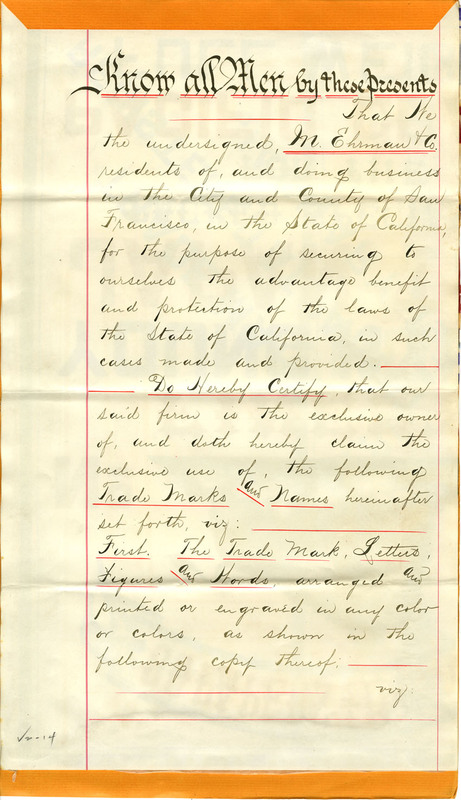 Know all Men by these Presents
That We
the undersigned, M. Ehrman & Co.
residents of, and doing business
in the City and County of San
Francisco, in the State of California,
for the purpose of securing to
ourselves the advantage benefit
and protection of the laws of
the State of California, in such
cases made and provided.
Do Hereby Certify, that our
said firm is the exclusive owner
of, and doth hereby claim the
exclusive use of, the following
Trade Marks and Names hereinafter
set forth, viz:
First. The Trade Mark, Letters,
Figures and Words, arranged and
printed or engraved in any color
or colors, as shown in the
following copy thereof:
viz: